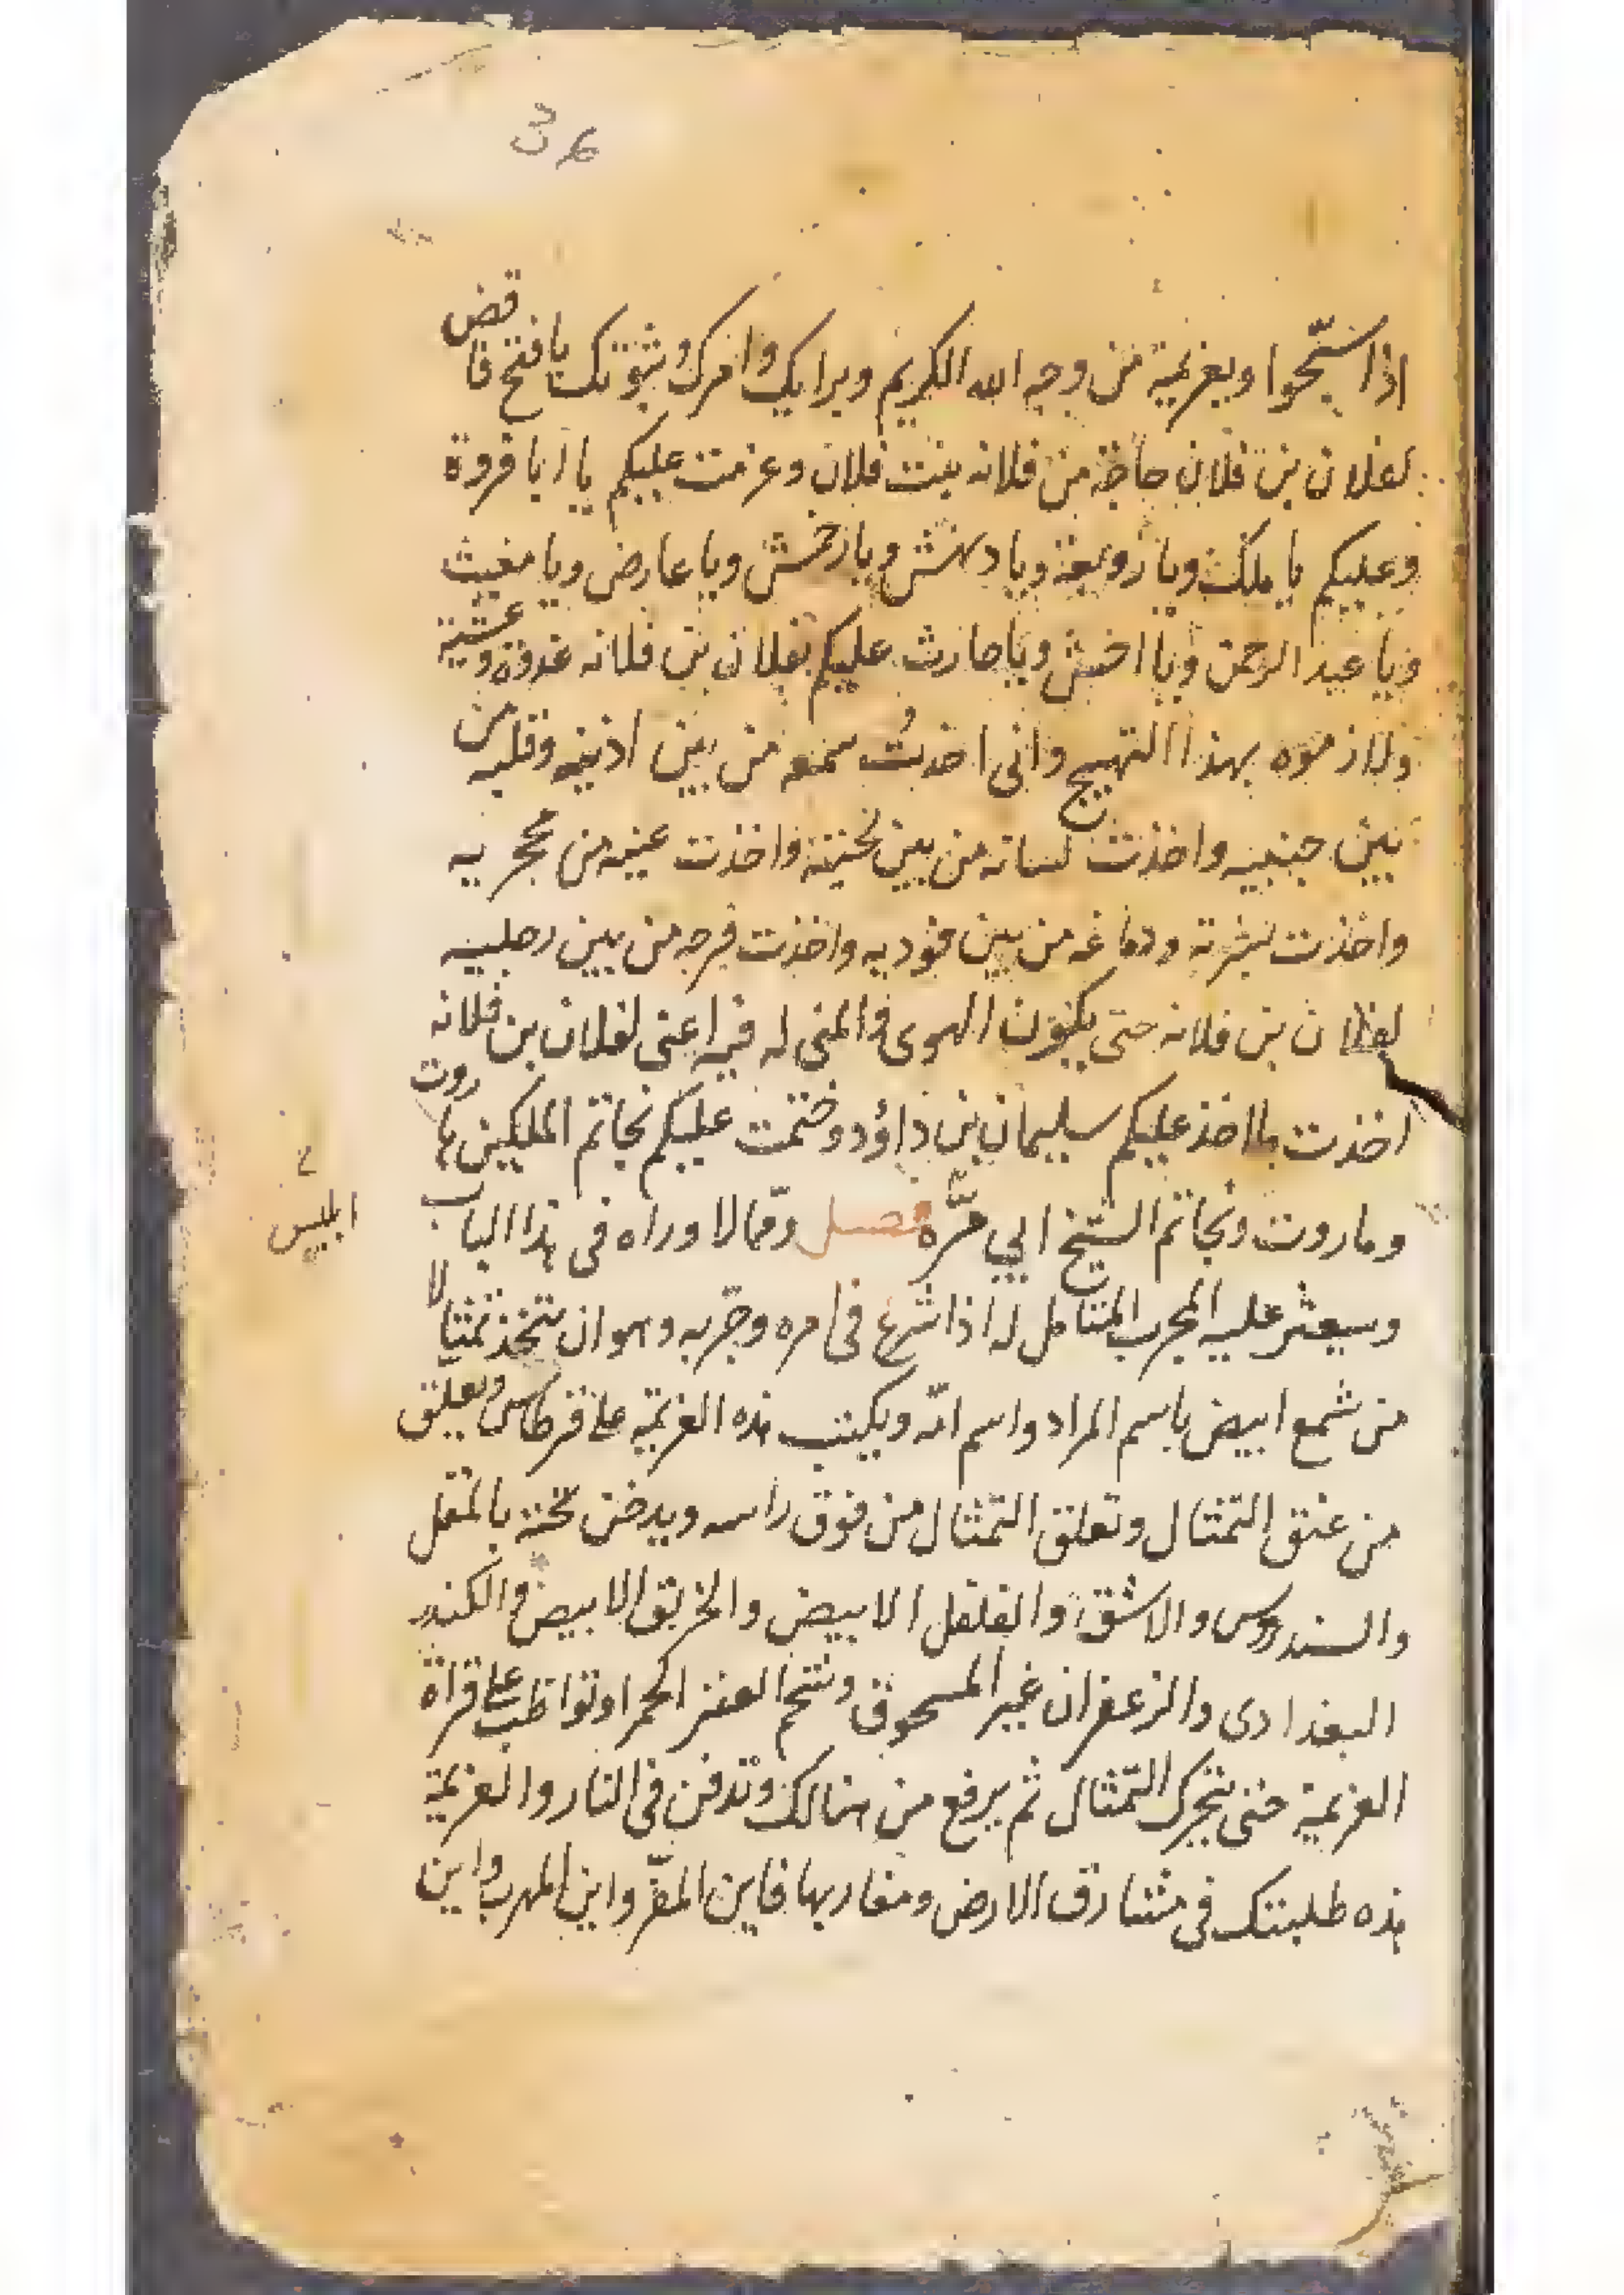 36
اذا سبّحوا وبعزيمة من وجه الله الكريم وبرايك وامرك وبثبوتك يا فتح فاقض
لفلان بن فلان حاجة من فلانه بنت فلان وعزمت عليكم يا ابا فروة
وعليكم يا ملك ويا زوبعة ويا دهنش ويا زخش ويا عارض ويا مغيث
ويا عبد الرحمن ويا اخش ويا حارث عليكم بفلان بن فلانه غدوة وعشية
ولازموه بهذا التهييج وانى اخذت سمعه من بين اذنيه وقلبه من
بين جنبيه واخذت لسانه من بين لحيته واخذت عينه من محجريه
واخذت بشرته ودماغه من بين فوديه واخذت فرجه من بين رجليه
لفلان بن فلانه حتى يكون الهوى والمنى له فيه اعنى لفلان بن فلانه
اخذت بما اخذ عليكم سليمان بن داؤد وختمت عليكم بخاتم الملكين هاروت
وماروت وبخاتم الشيخ ابي مرّة فصل وممّا لا وراه فى هذا الباب
ابليس
وسيعثر عليه المجرب المتامل له اذا شرع فى امره وجرّبه وهو ان يتخذ تمثالا
من شمع ابيض باسم المراد واسم امّه ويكتب هذه العزيمة على قرطاس ويعلق
من عنق التمثال وتعلق التمثال من فوق راسه ويدخن تحته بالمقل
والسندروس والاشق والفلفل الابيض والخربق الابيض والكندر
البغدادى والزعفران غير المسحوق وشحم العنز الحمرا وتواظب على قراة
العزيمة حتى يتحرك التمثال ثم يرفع من هنالك وتدفن فى النار والعزيمة
هذه طلبتك فى مشارق الارض ومغاربها فاين المفرّ واين المهرب واين